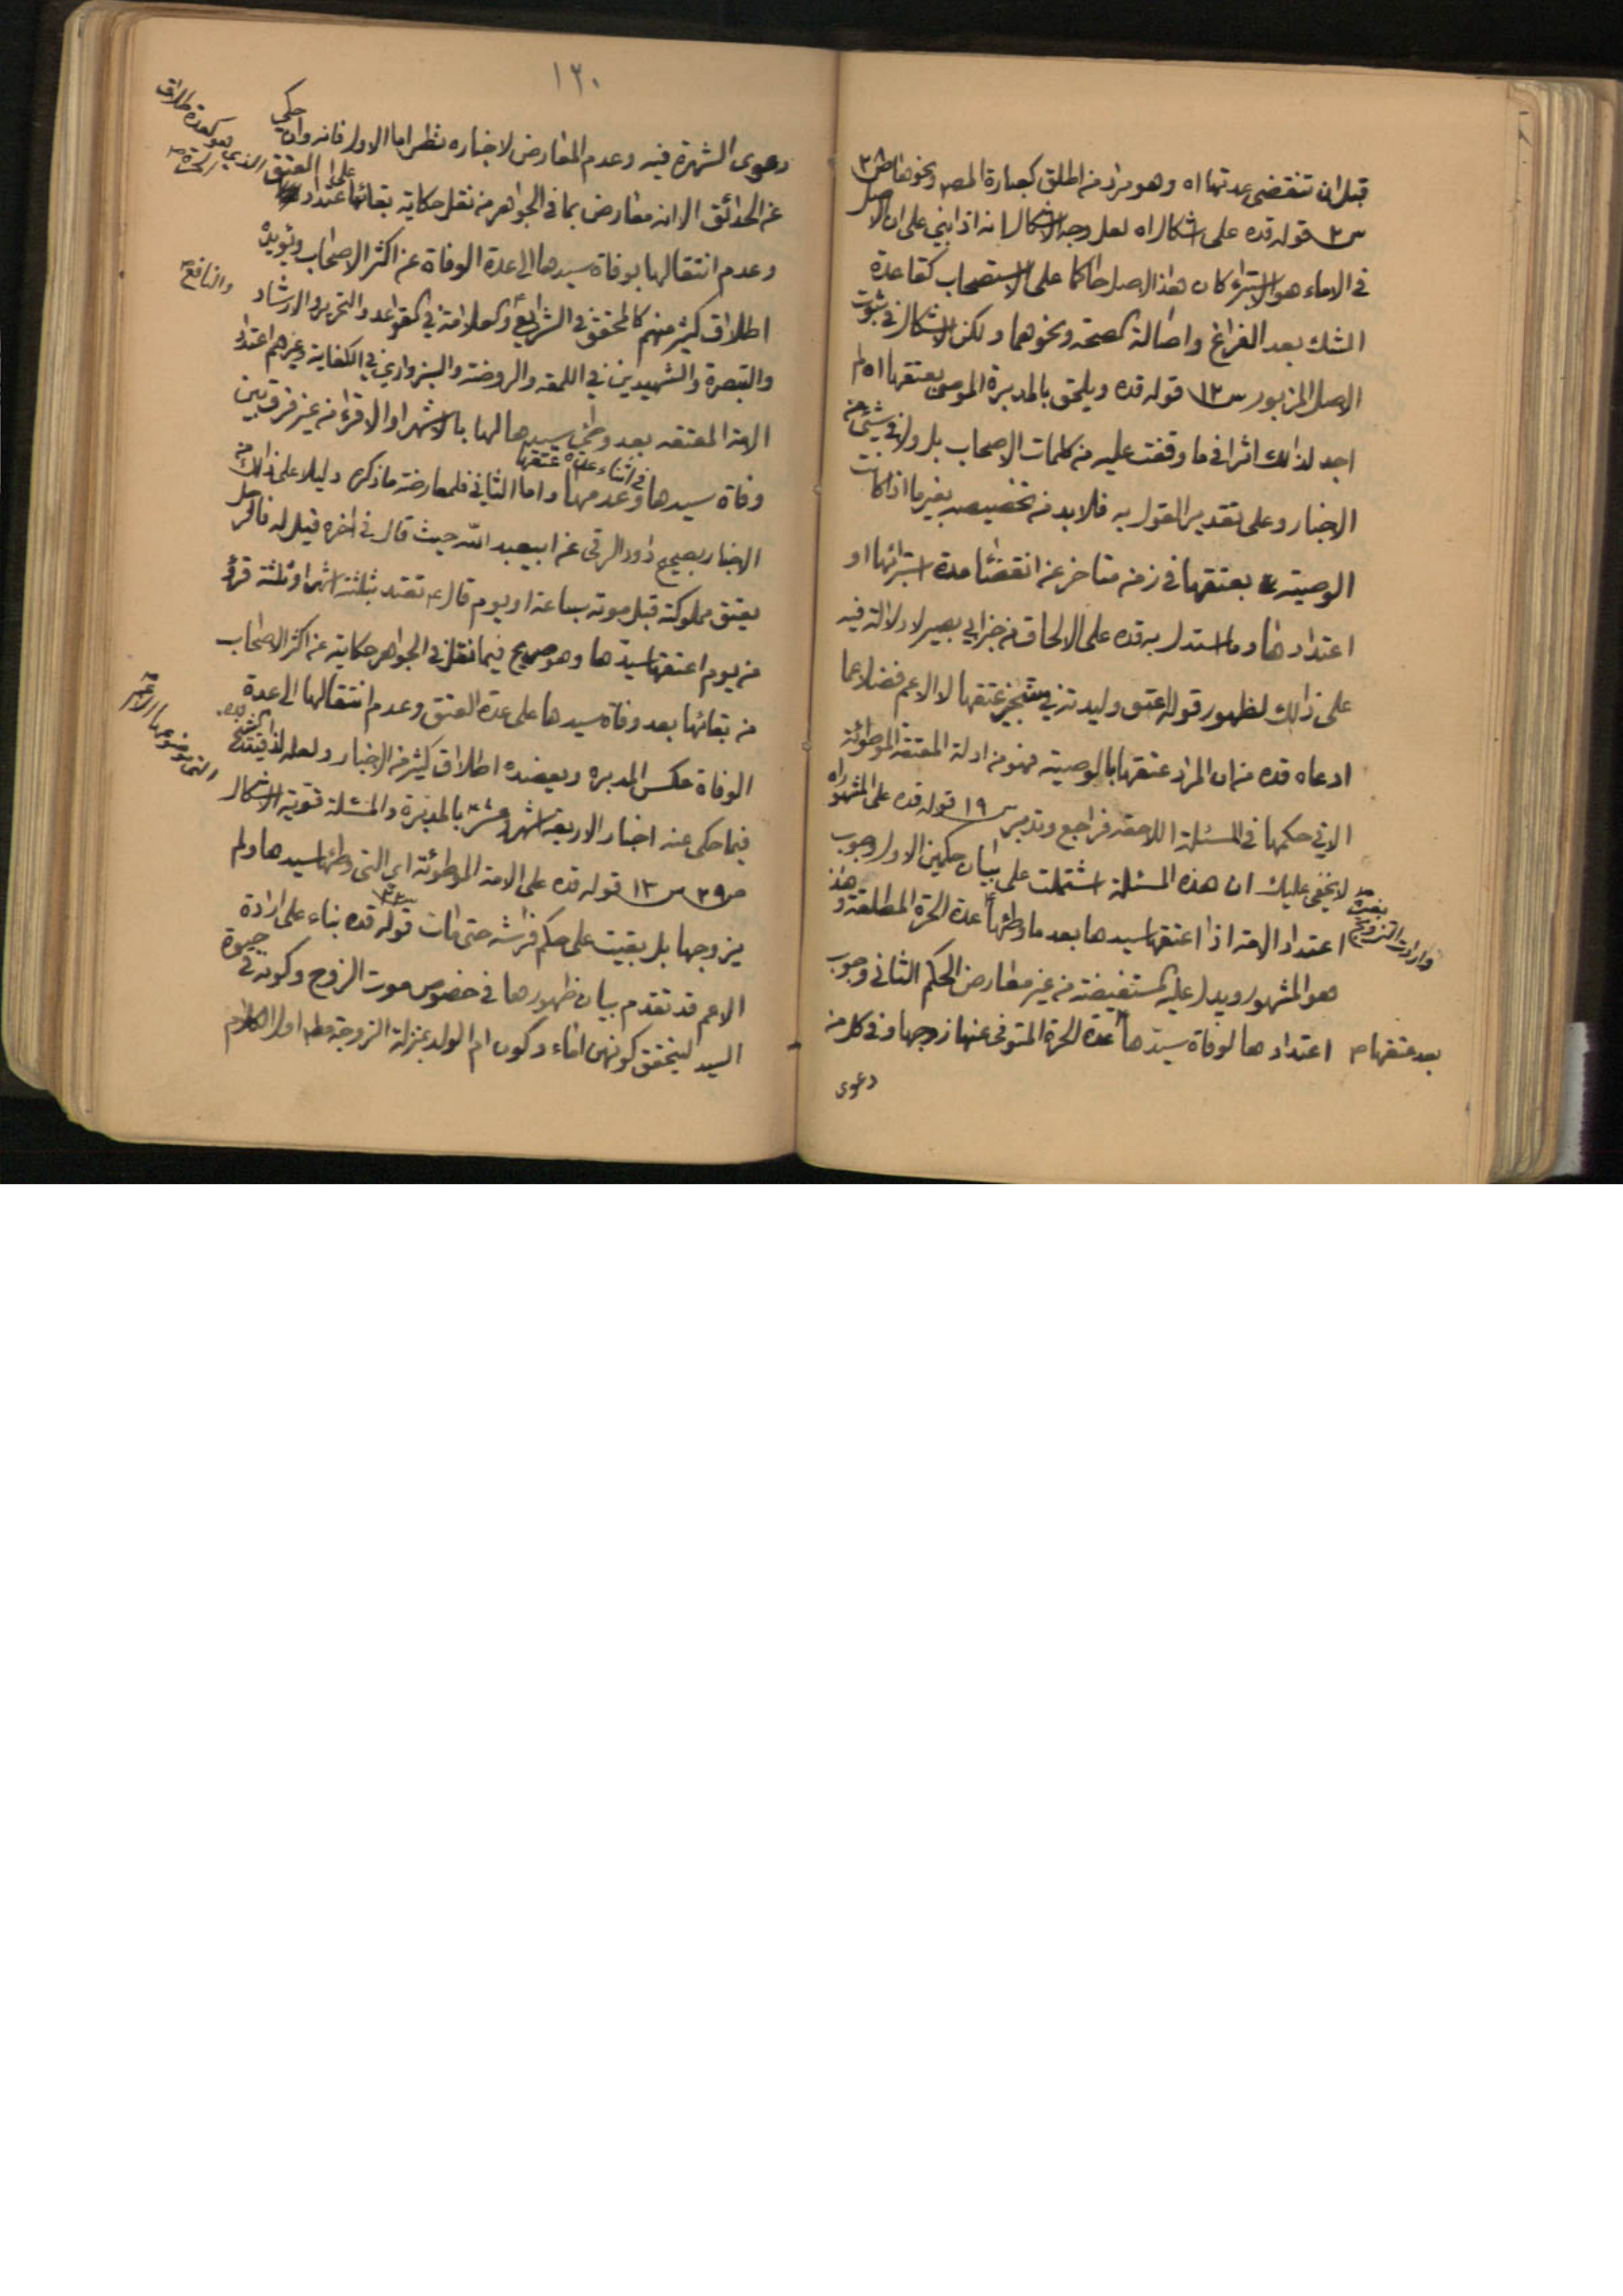 قبل ان تنقضى عدتها اه وهو مراد من اطلق كعبارة المص ونحوها ص٣٨
س٢ قوله قده على اشكال اه لعل وجه الاشكال انه اذا بني على ان الاصل
في الاماء هو الاستبراء كان هذا الاصل حاكما على الاستصحاب كقاعدة
الشك بعد الفراغ واصالة الصحة ونحوهما ولكن الاشكال في ثبوت
الاصل المزبور س١٢ قوله قده ويلحق بالمدبرة الموصى بعتقها اه لم
اجد لذلك اثرا في ما وقفت عليه من كلمات الاصحاب بل ولا في شئ من
الاخبار وعلى تقدير القول به فلابد من تخصيصه بغير ما اذا كانت
الوصية بعتقها في زمن متاخر عن انقضاء مدة استبرائها او
اعتدادها وما استدل به قده على الالحاق من خبر ابي بصير لا دلالة فيه
على ذلك لظهور قوله اعتق وليدته في تنجيز عتقها لا الاعم فضلا عما
ادعاه قده من ان المراد عتقها بالوصية فهو من ادلة المعتقة الموطوئة
الاتي حكمها في المسئلة اللاحقة فراجع وتدبر س١٩ قوله قده على المشهور اه
لا يخفى عليك ان هذه المسئلة اشتملت على بيان حكمين الاول وجوب
اعتداد الامة اذا اعتقها سيدها بعد ما وطئها عدة الحرة المطلقة وهذا
وارادت التزويج بغيره
هو المشهور ويدل عليه المستفيضة من غير معارض الحكم الثاني وجوب
اعتدادها لوفاة سيدها عدة الحرة المتوفى عنها زوجها وفي كل من
بعد عتقها
دعوى
١٢٠
دعوى الشهرة فيه وعدم المعارض لاخباره نظر اما الاول فانه وان حكي
عن الحدائق الا انه معارض بما في الجواهر من نقل حكاية بقائها على اعتداد العتق
الذي هو كعدة طلاق الحرة
وعدم انتقالها بوفاة سيدها الى عدة الوفاة عن اكثر الاصحاب ويؤيده
اطلاق كثير منهم كالمحقق في الشرايع والعلامة في القواعد والتحرير والارشاد
والنافع
والتبصرة والشهيدين في اللمعة والروضة والسبزواري في الكفاية وغيرهم اعتداد
الامة المعتقة بعد وطئ سيدها لها بالاشهر او الاقراء من غير فرق بين
وفاة سيدها في اثناء عدة عتقها وعدمها واما الثاني فلمعارضة ما ذكره دليلا على ذلك من
الاخبار بصحيح داود الرقي عن ابيعبد الله حيث قال في اخره قيل له فالرجل
يعتق مملوكته قبل موته بساعة او يوم قال ع تعتد بثلثة اشهر او ثلثة قروء
من يوم اعتقها سيدها وهو صريح فيما نقل في الجواهر حكاية عن اكثر الاصحاب
من بقائها بعد وفاة سيدها على عدة العتق وعدم انتقالها الى عدة
الوفاة عكس المدبرة ويعضده اطلاق كثير من الاخبار ولعله لذا قيد الشيخ قده
فيما حكى عنه اخبار الاربعة اشهر وعشر بالمدبرة والمسئلة قوية الاشكال
ص٣٩ س١٣ قوله قده على الامة الموطوئة اي التي وطئها سيدها ولم
يزوجها بل بقيت على حكم فراشه حتى مات قوله قده بناء على ارادة
الاعم قد تقدم بيان ظهورها في خصوص موت الزوج وكونه في حيوة
السيد ليتحقق كونهن اماء وكون ام الولد بمنزلة الزوجة مط اول الكلام